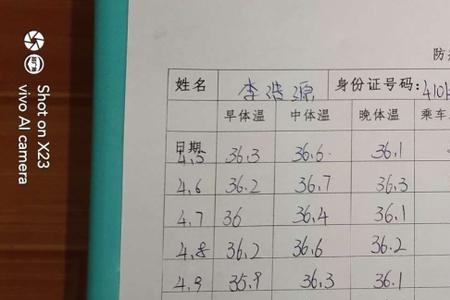 Shot on X23
vivo AI camera
防
姓名 李浩源 身份证号码: 410
早体温 中体温 晚体温 乘车
日期
4.5 36.3 36.6 36.1
4.6 36.2 36.7 36.3
4.7 36 36.4 36.1
4.8 36.2 36.6 36.2
4.9 35.9 36.3 36.1